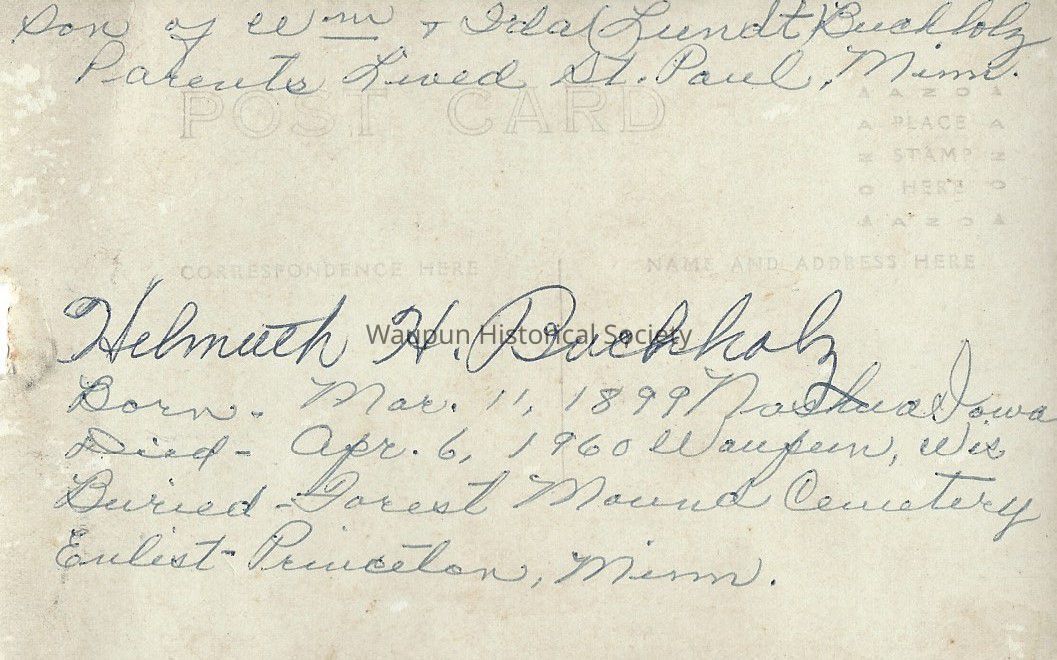 Son of Wm + Ida (Lundt) Buchholz
Parents Lived St. Paul, Minn.
POST CARD
AZO
PLACE
STAMP
HERE
AZO
CORRESPONDENCE HERE
NAME AND ADDRESS HERE
Helmuth H. Buchholz
Waupun Historical Society
Born - Mar. 11, 1899 Nashua Iowa
Died - Apr. 6, 1960 Waupun, Wis
Buried - Forest Mound Cemetery
Enlist - Princeton, Minn.